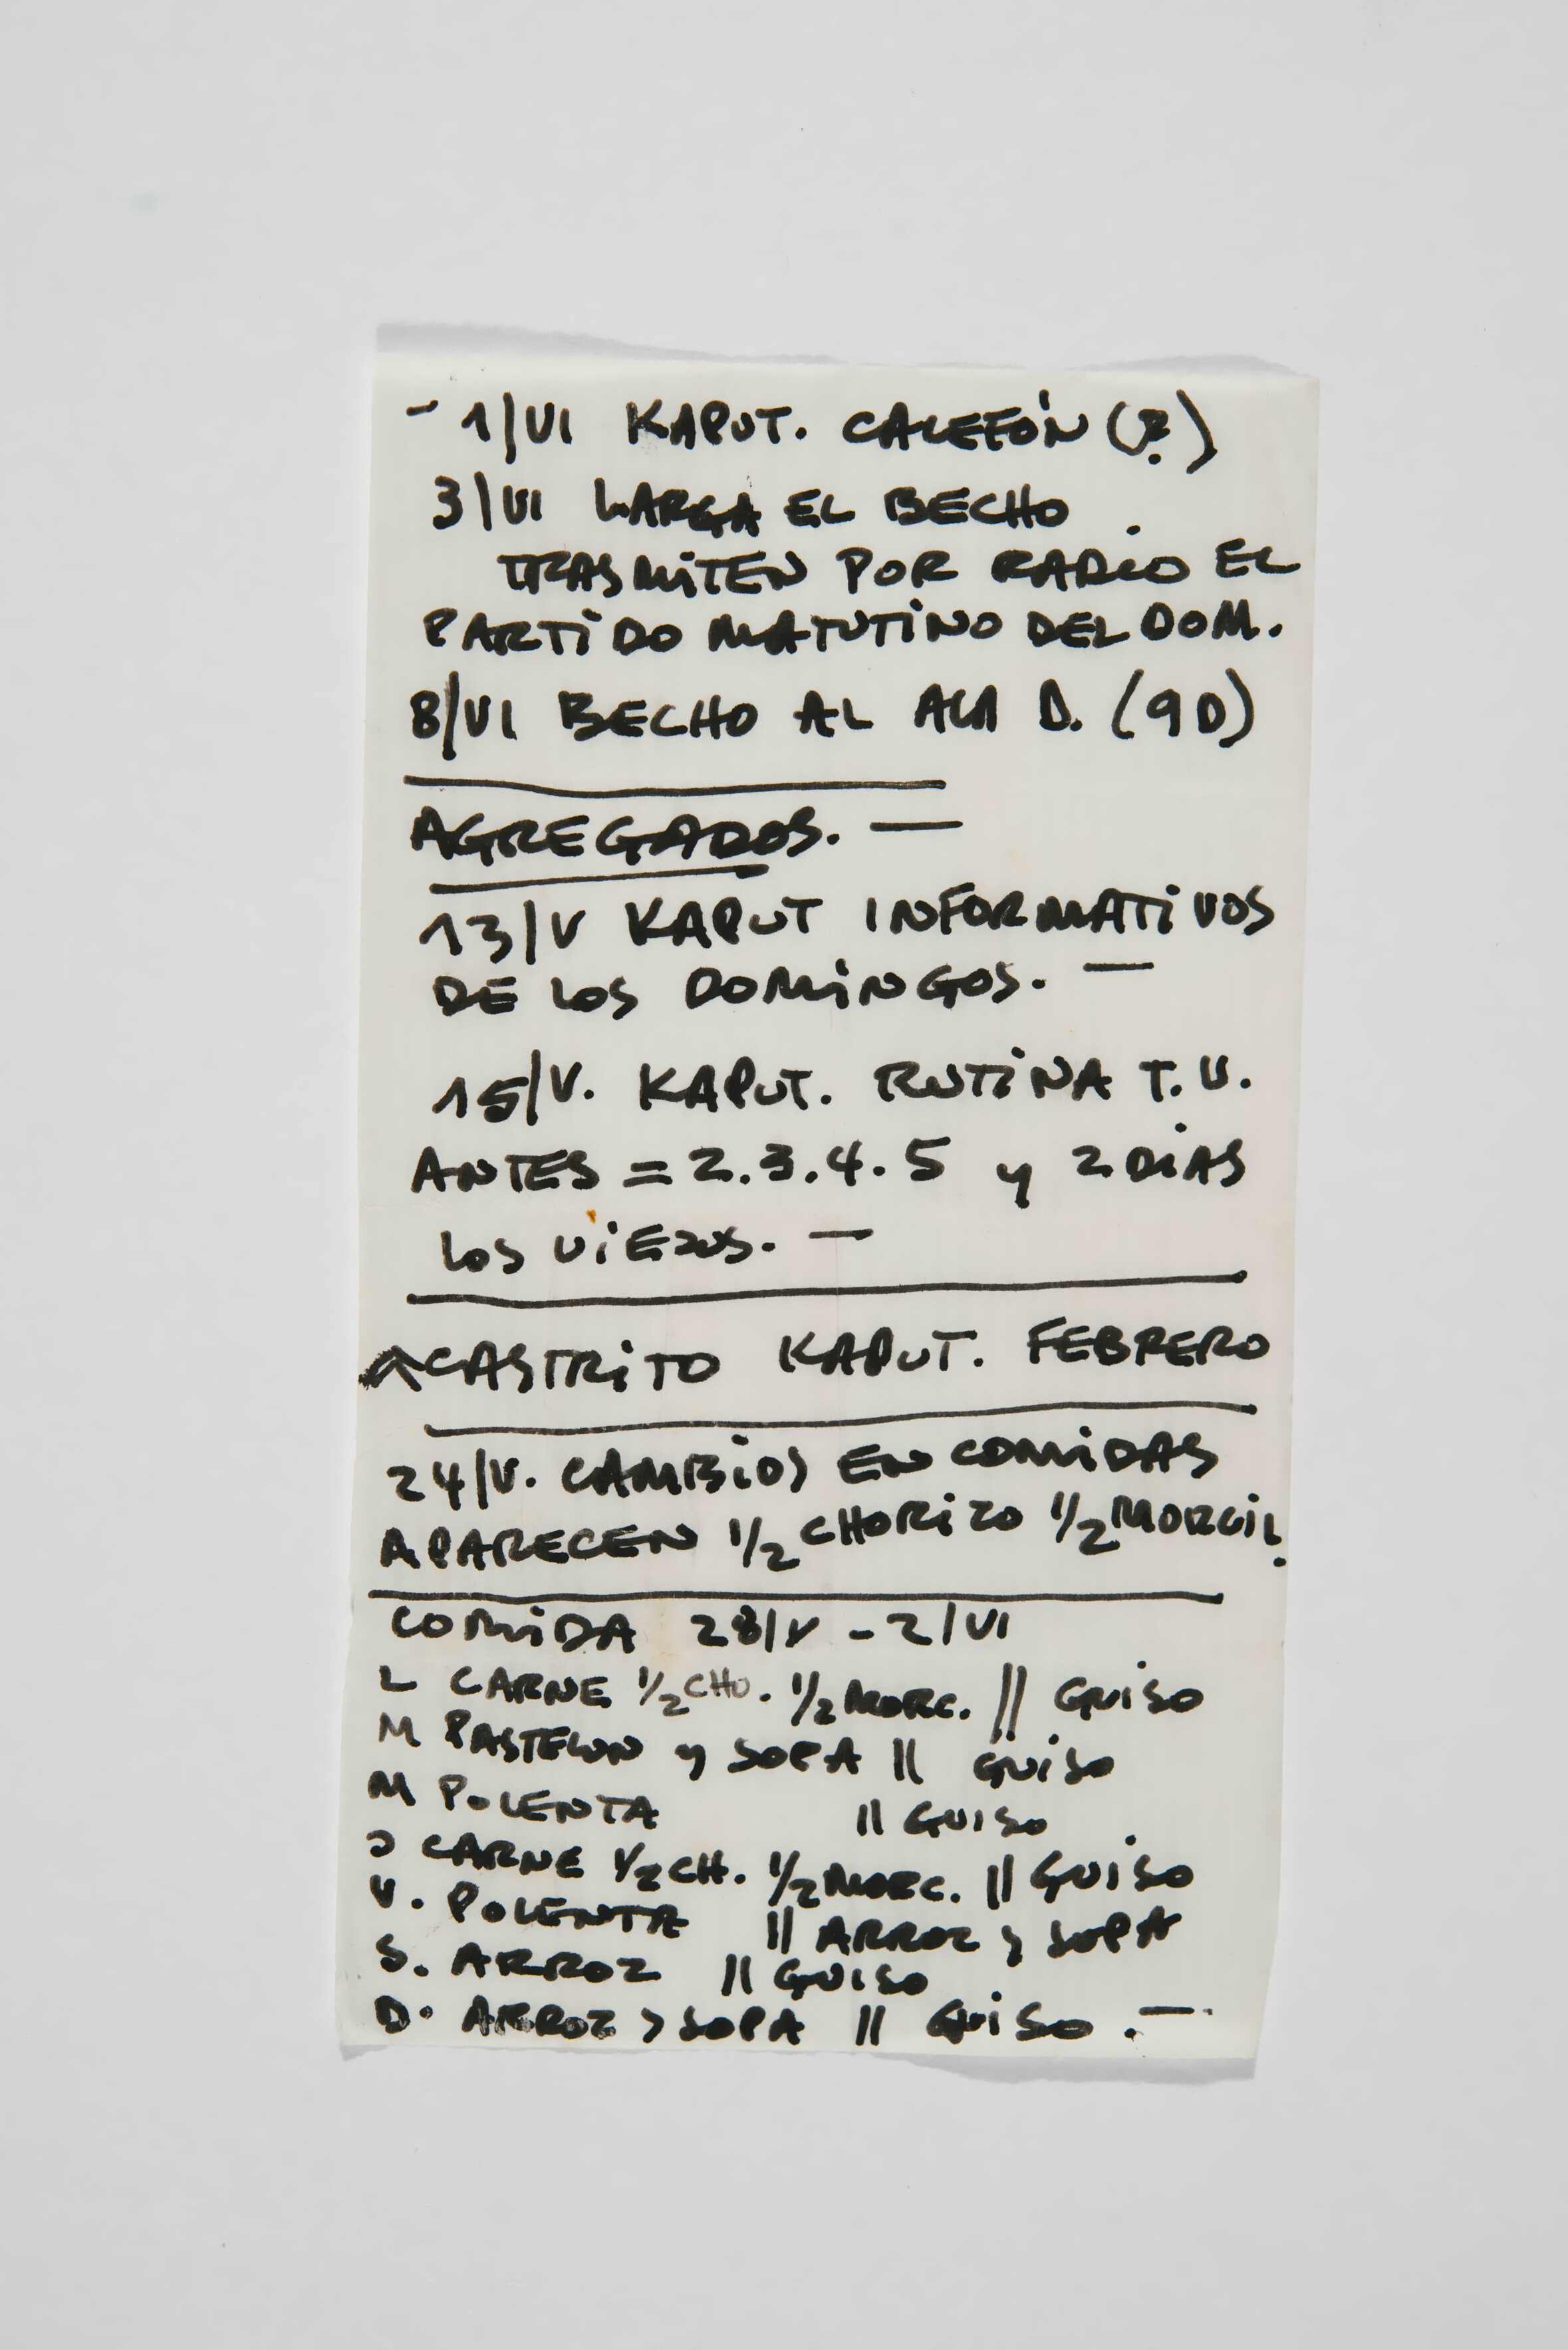 - 1/VI KAPUT. CALEFÓN (?)
3/VI LARGA EL BECHO
TRASMITEN POR RADIO EL
PARTIDO MATUTINO DEL DOM.
8/VI BECHO AL ALA D. (9D)
AGREGADOS. —
13/V KAPUT INFORMATIVOS
DE LOS DOMINGOS. —
15/V. KAPUT. RUTINA T.V.
ANTES = 2.3.4.5 y 2 DIAS
LOS VIEJOS. —
CASTRITO KAPUT. FEBRERO
24/V. CAMBIOS EN COMIDAS
APARECEN 1/2 CHORIZO 1/2 MORCIL.
COMIDA 28/V - 2/VI
L CARNE 1/2 CHO. 1/2 MORC. // GUISO
M PASTELON y SOPA // GUISO
M POLENTA // GUISO
J CARNE 1/2 CH. 1/2 MORC. // GUISO
V. POLENTA // ARROZ y SOPA
S. ARROZ // GUISO
D. ARROZ y SOPA // GUISO . —